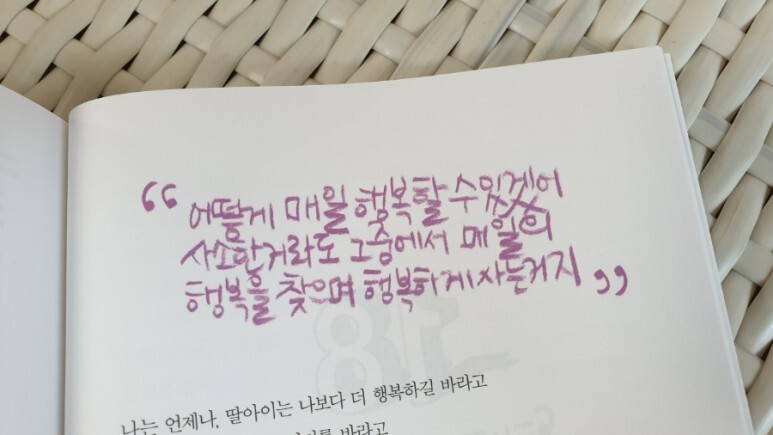 “ 어떻게 매일 행복할 수 있겠어
사소한거라도 그중에서 매일의
행복을 찾으며 행복하게 사는거지 ”
나는 언제나, 딸아이는 나보다 더 행복하길 바라고
바라고